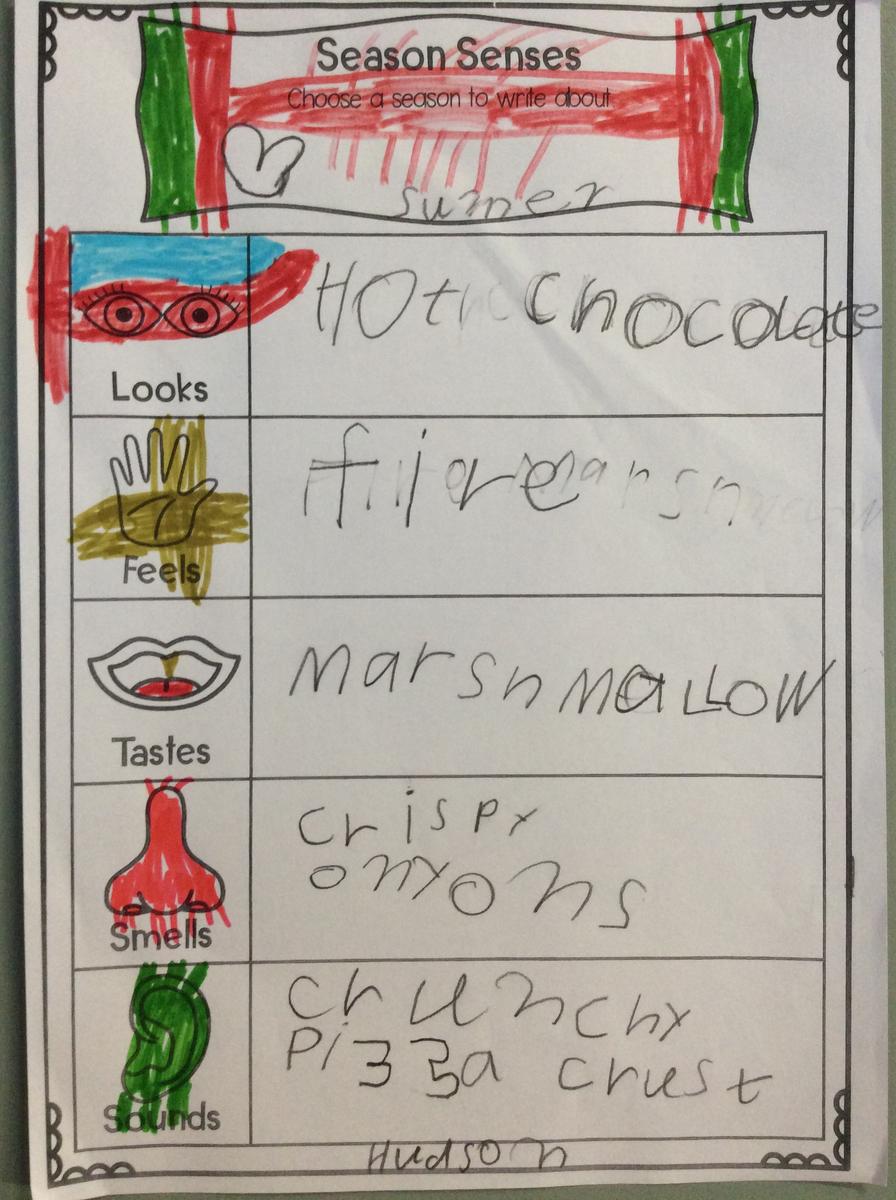 Season Senses
Choose a season to write about
sumer
Looks
HOt chocolate
Feels
fire
Tastes
MarshMaLLOW
crispy
onyons
Smells
crunchy
Pizza crust
Sounds
Hudson